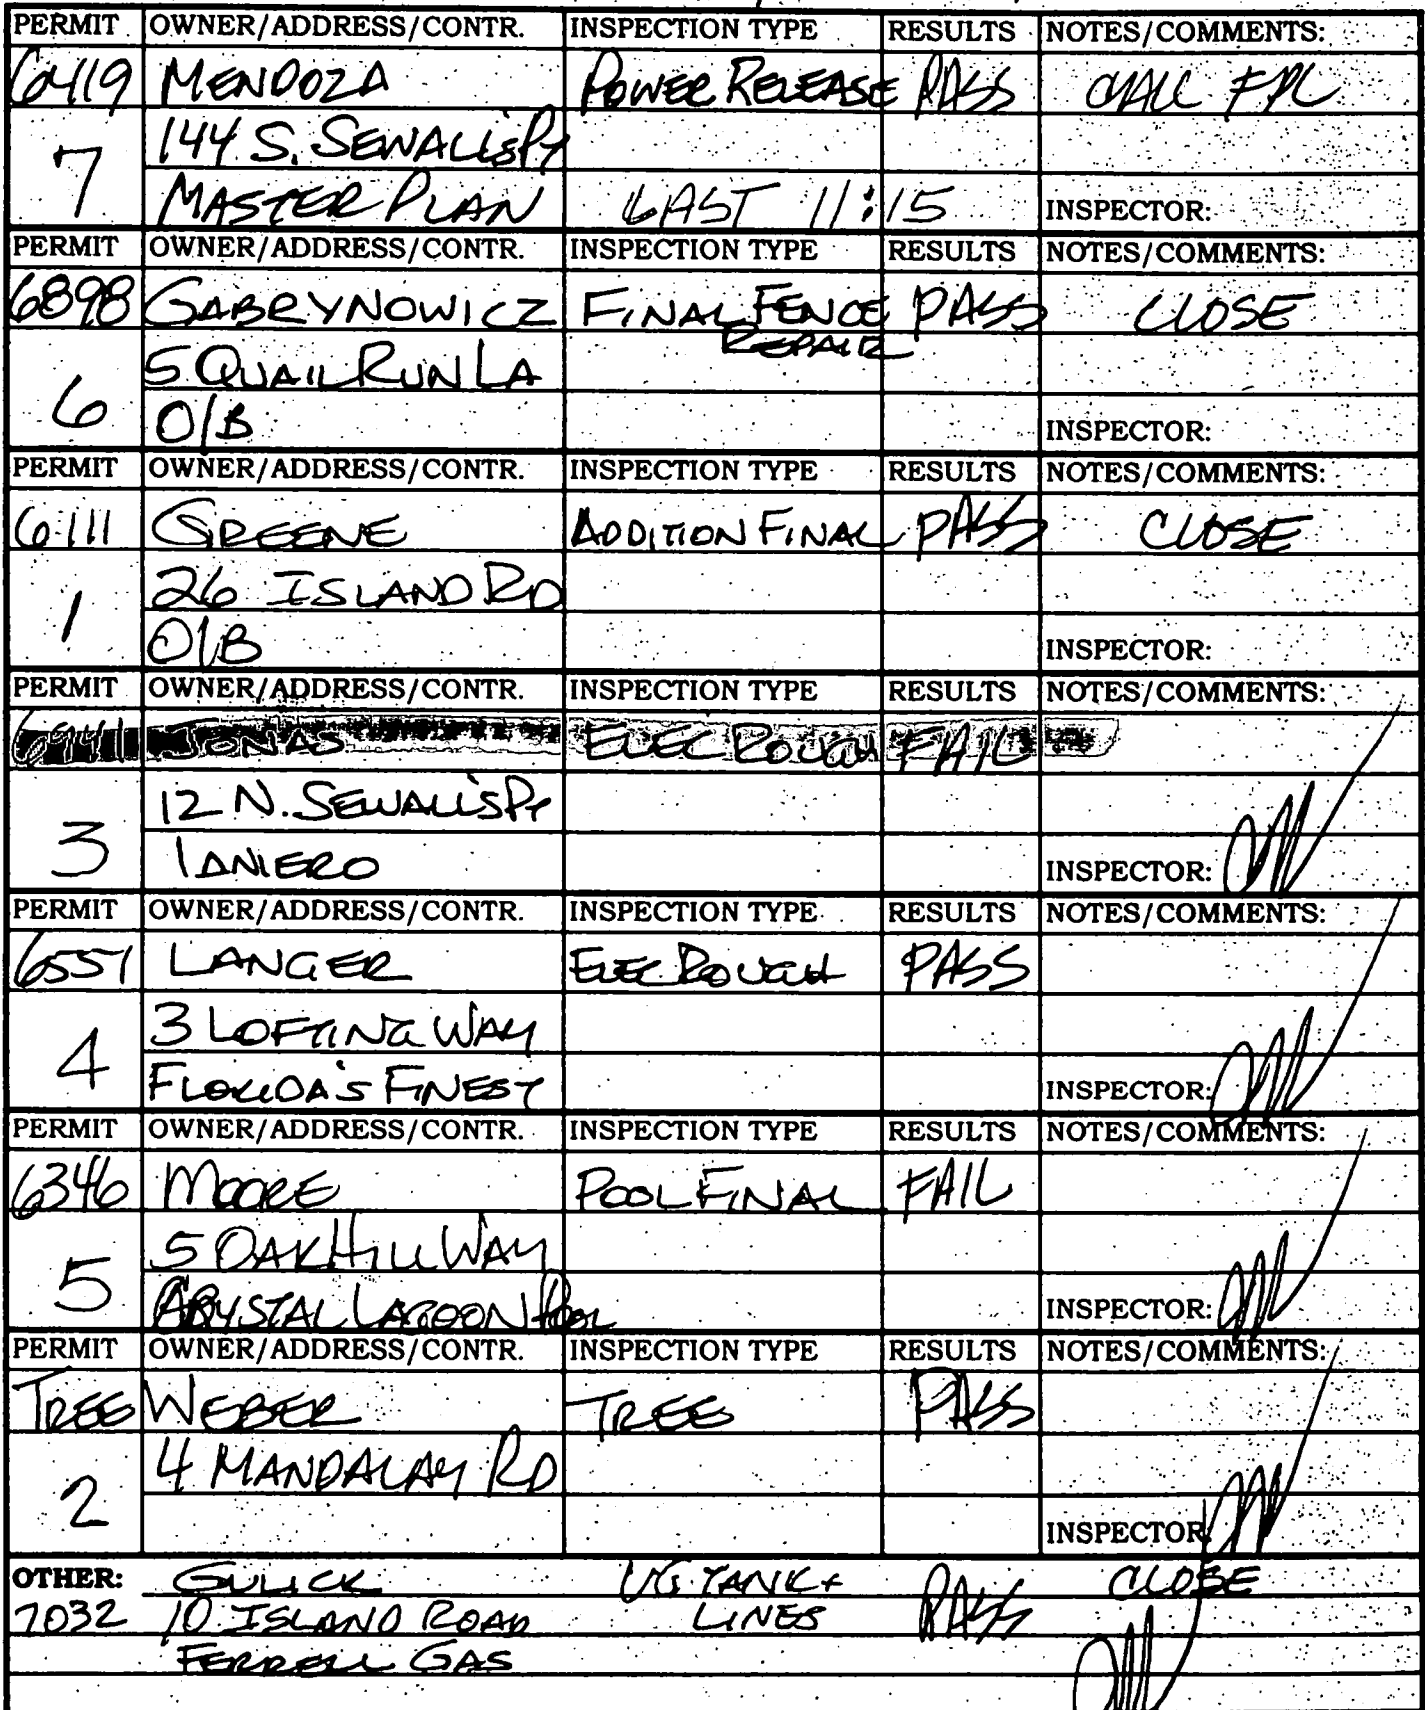 PERMIT OWNER/ADDRESS/CONTR. INSPECTION TYPE RESULTS NOTES/COMMENTS:
6419 MENDOZA POWER RELEASE PASS CALL FPL
7 144 S. SEWALL'S PT
MASTER PLAN LAST 11:15 INSPECTOR:
PERMIT OWNER/ADDRESS/CONTR. INSPECTION TYPE RESULTS NOTES/COMMENTS:
6898 GABRYNOWICZ FINAL FENCE PASS CLOSE
REPAIR
6 5 QUAIL RUN LA
O/B INSPECTOR:
PERMIT OWNER/ADDRESS/CONTR. INSPECTION TYPE RESULTS NOTES/COMMENTS:
6111 GREENE ADDITION FINAL PASS CLOSE
1 26 ISLAND RD
O/B INSPECTOR:
PERMIT OWNER/ADDRESS/CONTR. INSPECTION TYPE RESULTS NOTES/COMMENTS:
6941 JONAS ELEC ROUGH FAIL
3 12 N. SEWALL'S PT
IANIERO INSPECTOR:
PERMIT OWNER/ADDRESS/CONTR. INSPECTION TYPE RESULTS NOTES/COMMENTS:
6551 LANGER ELEC ROUGH PASS
4 3 LOFTING WAY
FLORIDA'S FINEST INSPECTOR:
PERMIT OWNER/ADDRESS/CONTR. INSPECTION TYPE RESULTS NOTES/COMMENTS:
6346 MOORE POOL FINAL FAIL
5 5 OAK HILL WAY
CRYSTAL LAGOON POOL INSPECTOR:
PERMIT OWNER/ADDRESS/CONTR. INSPECTION TYPE RESULTS NOTES/COMMENTS:
TREE WEBER TREE PASS
2 4 MANDALAY RD
INSPECTOR
OTHER: GULICK UG TANK + CLOSE
7032 10 ISLAND ROAD LINES PASS
FERRELL GAS